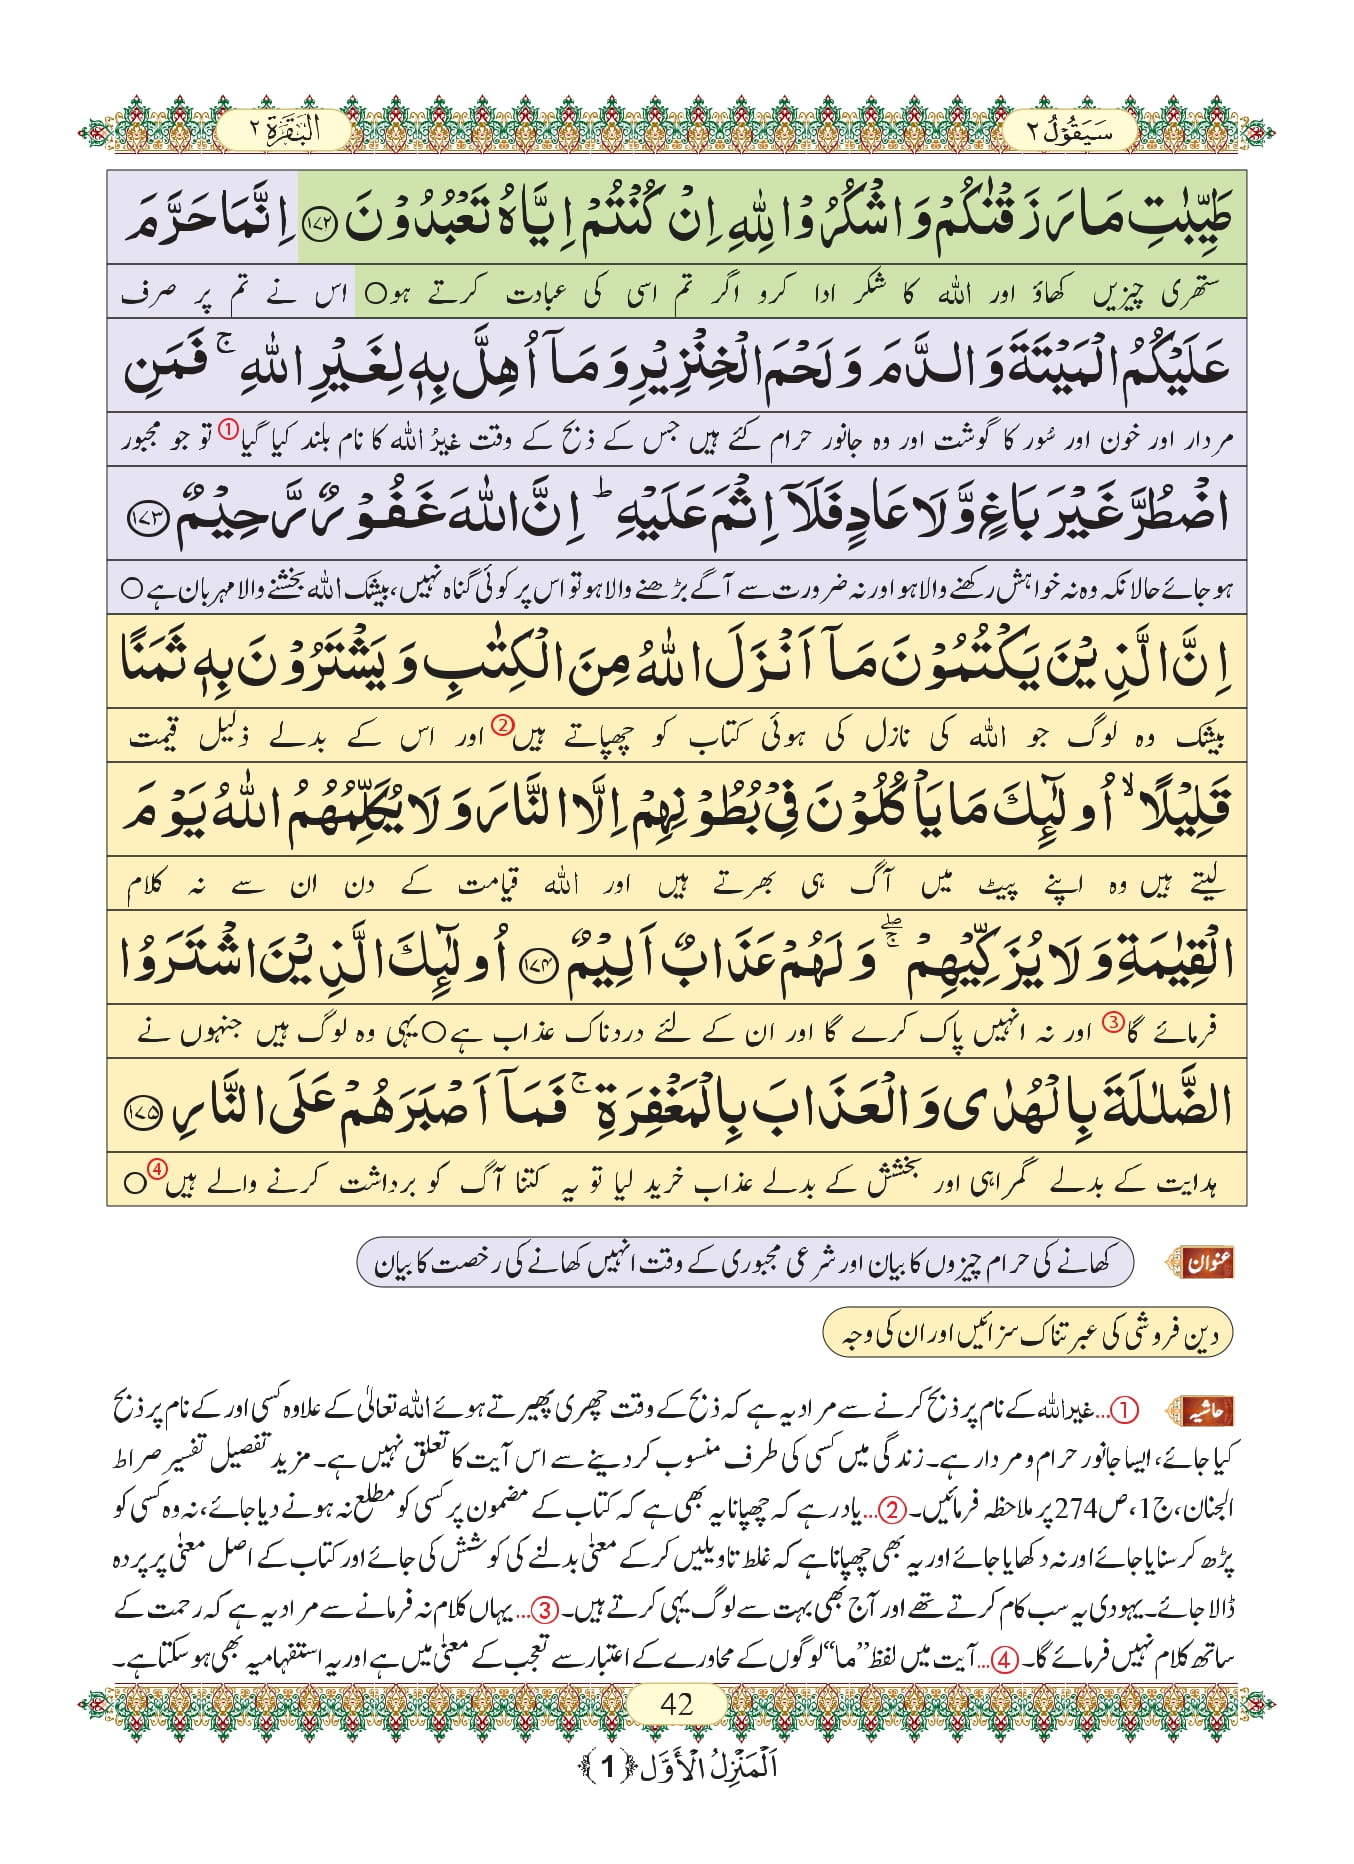 سَيَقُوْلُ ٢
اَلْبَقَرَة ٢
طَيِّبٰتِ مَا رَزَقْنٰكُمْ وَ اشْكُرُوْا لِلّٰهِ اِنْ كُنْتُمْ اِيَّاهُ تَعْبُدُوْنَ ﴿۱۷۲﴾ اِنَّمَا حَرَّمَ
ستھری چیزیں کھاؤ اور اللہ کا شکر ادا کرو اگر تم اسی کی عبادت کرتے ہو○ اس نے تم پر صرف
عَلَيْكُمُ الْمَيْتَةَ وَ الدَّمَ وَ لَحْمَ الْخِنْزِيْرِ وَ مَاۤ اُهِلَّ بِهٖ لِغَيْرِ اللّٰهِ ۚ فَمَنِ
مردار اور خون اور سُور کا گوشت اور وہ جانور حرام کئے ہیں جس کے ذبح کے وقت غیرُ اللہ کا نام بلند کیا گیا① تو جو مجبور
اضْطُرَّ غَيْرَ بَاغٍ وَّ لَا عَادٍ فَلَاۤ اِثْمَ عَلَيْهِ ؕ اِنَّ اللّٰهَ غَفُوْرٌ رَّحِيْمٌ ﴿۱۷۳﴾
ہو جائے حالانکہ وہ نہ خواہش رکھنے والا ہو اور نہ ضرورت سے آگے بڑھنے والا ہو تو اس پر کوئی گناہ نہیں، بیشک اللہ بخشنے والا مہربان ہے○
اِنَّ الَّذِيْنَ يَكْتُمُوْنَ مَاۤ اَنْزَلَ اللّٰهُ مِنَ الْكِتٰبِ وَ يَشْتَرُوْنَ بِهٖ ثَمَنًا
بیشک وہ لوگ جو اللہ کی نازل کی ہوئی کتاب کو چھپاتے ہیں② اور اس کے بدلے ذلیل قیمت
قَلِيْلًا ۙ اُولٰٓىِٕكَ مَا يَاْكُلُوْنَ فِيْ بُطُوْنِهِمْ اِلَّا النَّارَ وَ لَا يُكَلِّمُهُمُ اللّٰهُ يَوْمَ
لیتے ہیں وہ اپنے پیٹ میں آگ ہی بھرتے ہیں اور اللہ قیامت کے دن ان سے نہ کلام
الْقِيٰمَةِ وَ لَا يُزَكِّيْهِمْ ۖۚ وَ لَهُمْ عَذَابٌ اَلِيْمٌ ﴿۱۷۴﴾ اُولٰٓىِٕكَ الَّذِيْنَ اشْتَرَوُا
فرمائے گا③ اور نہ انہیں پاک کرے گا اور ان کے لئے دردناک عذاب ہے○ یہی وہ لوگ ہیں جنہوں نے
الضَّلٰلَةَ بِالْهُدٰى وَ الْعَذَابَ بِالْمَغْفِرَةِ ۚ فَمَاۤ اَصْبَرَهُمْ عَلَى النَّارِ ﴿۱۷۵﴾
ہدایت کے بدلے گمراہی اور بخشش کے بدلے عذاب خرید لیا تو یہ کتنا آگ کو برداشت کرنے والے ہیں④○
عنوان کھانے کی حرام چیزوں کا بیان اور شرعی مجبوری کے وقت انہیں کھانے کی رخصت کا بیان
دین فروشی کی عبرتناک سزائیں اور ان کی وجہ
حاشیہ ①...غیرُ اللہ کے نام پر ذبح کرنے سے مراد یہ ہے کہ ذبح کے وقت چھری پھیرتے ہوئے اللہ تعالیٰ کے علاوہ کسی اور کے نام پر ذبح
کیا جائے، ایسا جانور حرام و مردار ہے۔ زندگی میں کسی کی طرف منسوب کر دینے سے اس آیت کا تعلق نہیں ہے۔ مزید تفصیل تفسیر صراط
الجنان، ج1، ص274 پر ملاحظہ فرمائیں۔ ②...یاد رہے کہ چھپانا یہ بھی ہے کہ کتاب کے مضمون پر کسی کو مطلع نہ ہونے دیا جائے، نہ وہ کسی کو
پڑھ کر سنایا جائے اور نہ دکھایا جائے اور یہ بھی چھپانا ہے کہ غلط تاویلیں کرکے معنیٰ بدلنے کی کوشش کی جائے اور کتاب کے اصل معنیٰ پر پردہ
ڈالا جائے۔ یہودی یہ سب کام کرتے تھے اور آج بھی بہت سے لوگ یہی کرتے ہیں۔ ③...یہاں کلام نہ فرمانے سے مراد یہ ہے کہ رحمت کے
ساتھ کلام نہیں فرمائے گا۔ ④...آیت میں لفظ ”ما“ لوگوں کے محاورے کے اعتبار سے تعجب کے معنیٰ میں ہے اور یہ استفہامیہ بھی ہو سکتا ہے۔
42
اَلْمَنْزِلُ الْأَوَّل ﴿1﴾